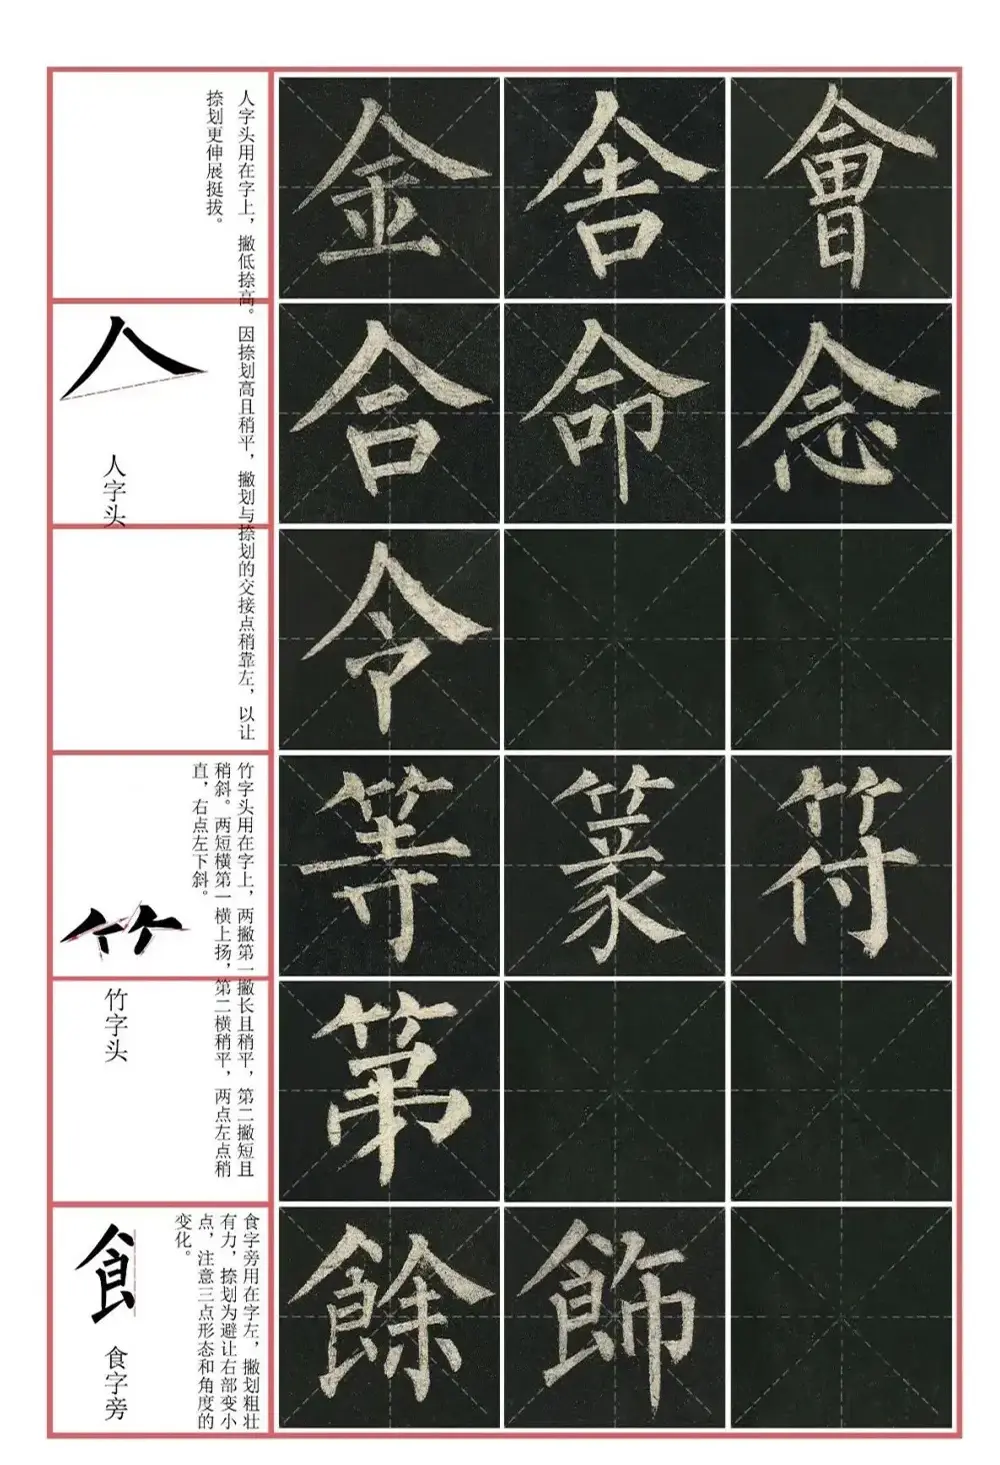 人字头用在字上，撇低捺高。因捺划高且稍平，撇划与捺划的交接点稍靠左，以让
捺划更伸展挺拔。
人
人字头
金舍會
合命念
令
竹字头用在字上，两撇第一撇长且稍平，第二撇短且
稍斜。两短横第一横上扬，第二横稍平，两点左点稍
直，右点左下斜。
竹字头
等篆符
第
食字旁用在字左，撇划粗壮
有力，捺划为避让右部变小
点，注意三点形态和角度的
变化。
食字旁
餘飾